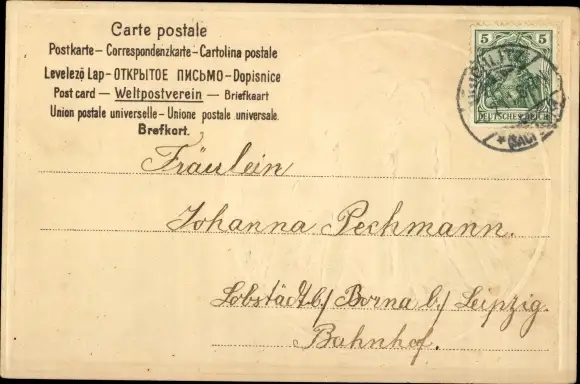 Carte postale
Postkarte – Correspondenzkarte – Cartolina postale
Levelező Lap – ОТКРЫТОЕ ПИСЬМО – Dopisnice
Post card — Weltpostverein — Briefkaart
Union postale universelle – Unione postale universale.
Brefkort.
5 5
DEUTSCHES REICH
(SAC)
Fräulein
Johanna Pechmann.
Lobstädt b/ Borna b/ Leipzig.
Bahnhof.